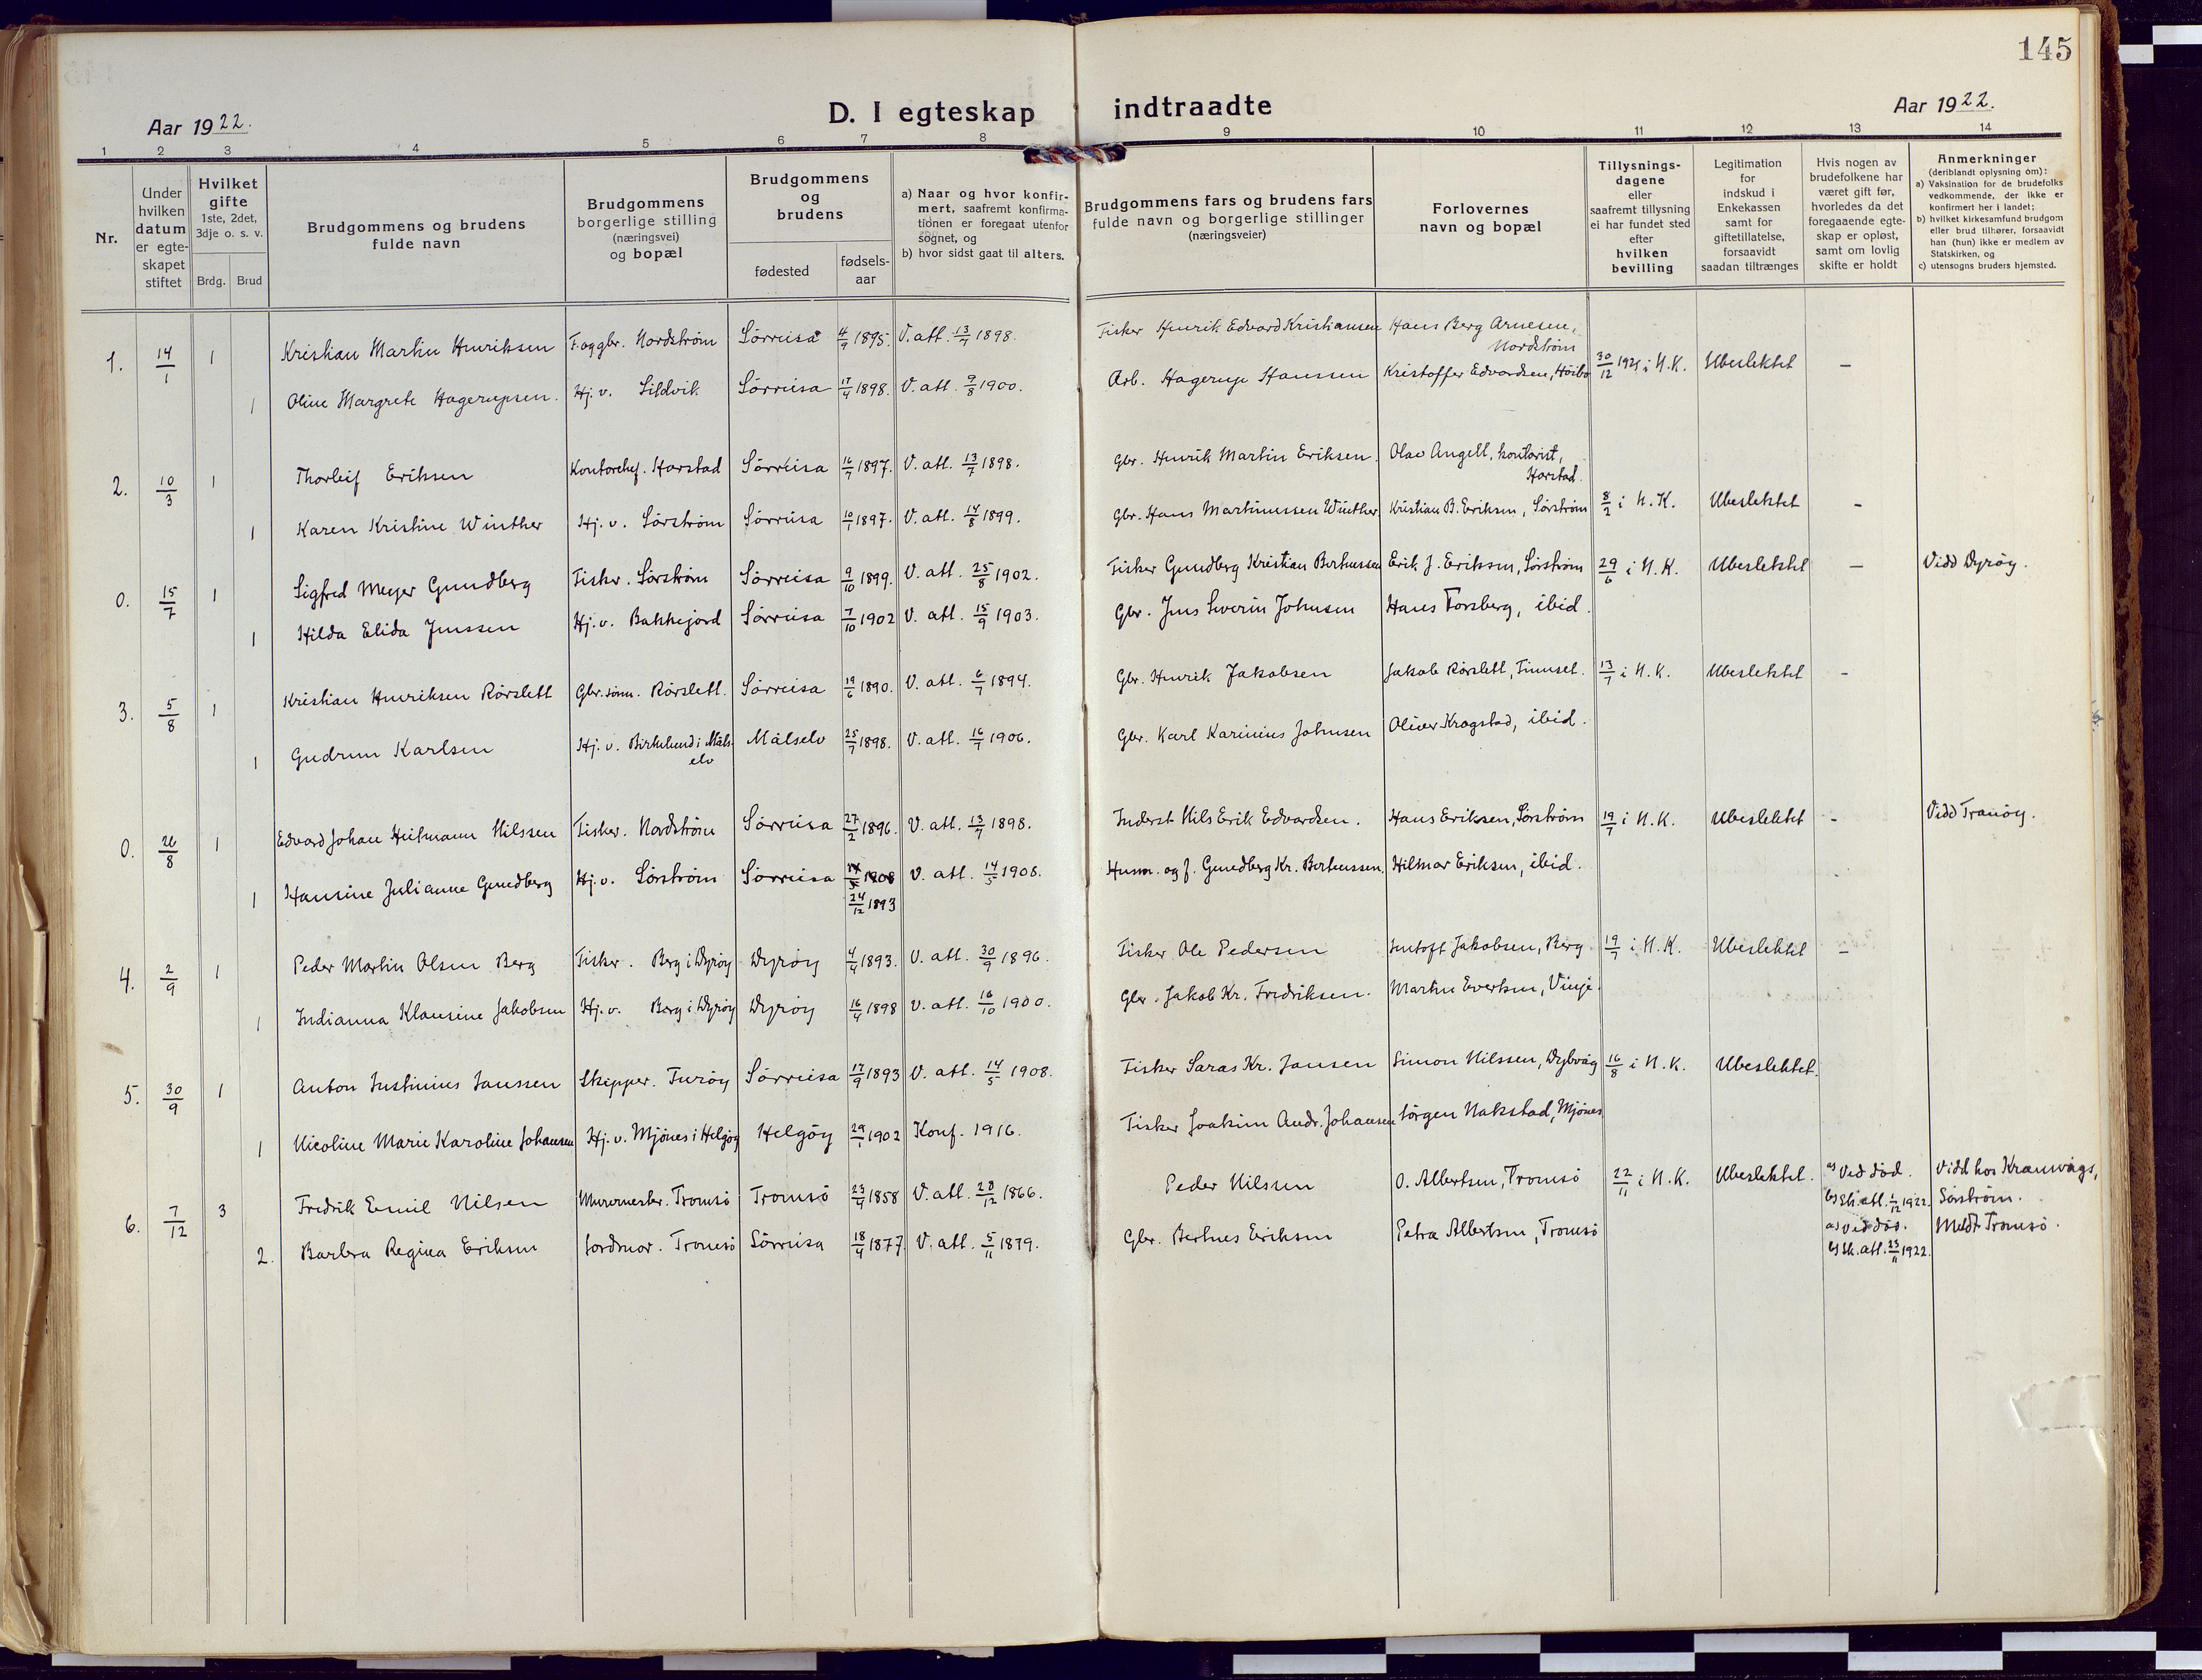 145
Aar 1922.
D. I egteskap indtraadte
Aar 1922.
1 2 3 4 5 6 7 8 9 10 11 12 13 14
Nr.
Under hvilken datum er egteskapet stiftet
Hvilket gifte 1ste, 2det, 3dje o. s. v.
Brdg. Brud
Brudgommens og brudens fulde navn
Brudgommens borgerlige stilling (næringsvei) og bopæl
Brudgommens og brudens
fødested
fødselsaar
a) Naar og hvor konfirmert, saafremt konfirmationen er foregaat utenfor sognet, og
b) hvor sidst gaat til alters.
Brudgommens fars og brudens fars fulde navn og borgerlige stillinger (næringsveier)
Forlovernes navn og bopæl
Tillysningsdagene eller saafremt tillysning ei har fundet sted efter hvilken bevilling
Legitimation for indskud i Enkekassen samt for giftetillatelse, forsaavidt saadan tiltrænges
Hvis nogen av brudefolkene har været gift før, hvorledes da det foregaaende egteskap er opløst, samt om lovlig skifte er holdt
Anmerkninger
(deriblandt oplysning om):
a) Vaksination for de brudefolks vedkommende, der ikke er konfirmert her i landet;
b) hvilket kirkesamfund brudgom eller brud tilhører, forsaavidt han (hun) ikke er medlem av Statskirken, og
c) utensogns bruders hjemsted.
1. 14/1 1 Kristian Martin Henriksen F. og gbr. Nordstrøm Sörreisa 4/9 1895. V. att. 13/7 1898. Fisker Henrik Edvard Kristiansen Hans Berg Arnesen, Nordstrøm 30/12 1921 i N.K. Ubeslektet –
1 Oline Margrete Hagerupsen. Hj. v. Sildvik Sörreisa 17/4 1898. V. att. 9/8 1900. Arb. Hagerup Hanssen Kristoffer Edvardsen,
2. 10/3 1 Thorleif Eriksen Kontorchef. Harstad Sörreisa 16/7 1897. V. att. 13/7 1898. Gbr. Henrik Martin Eriksen. Olav Angell, kontorist, Harstad. 8/2 i N. K. Ubeslektet –
1 Karen Kristine Winther Hj. v. Sörstrøm Sörreisa 10/1 1897. V. att. 14/8 1899. Gbr. Hans Martinussen Winther. Kristian B. Eriksen, Sörstrøm
0. 15/7 1 Sigfred Meyer Gundberg Fisker. Sörstrøm Sörreisa 9/10 1899. V. att. 25/8 1902. Fisker Gundberg Kristian Berteussen Erik J. Eriksen, Sörstrøm 29/6 i N. K. Ubeslektet – Vidd Dyröy.
1 Hilda Elida Jenssen Hj. v. Bakkejord Sörreisa 7/10 1902 V. att. 15/9 1903. Gbr. Jens Severin Johnsen Hans Forsberg, ibid.
3. 5/8 1 Kristian Henriksen Rörslett Gbr. sönn. Rörslett. Sörreisa 19/6 1890. V. att. 6/7 1894. Gbr. Henrik Jakobsen Jakob Rörslett, Finnset. 13/7 i N. K. Ubeslektet –
1 Gudrun Karlsen Hj. v. Birkelund i Målselv Målselv 25/7 1898. V. att. 16/7 1906. Gbr. Karl Karinius Johnsen Oliver Kragstad, ibid.
0. 26/8 1 Edvard Johan Heitmann Nilssen Fisker. Nordstrøm Sörreisa 27/2 1896. V. att. 13/7 1898. Inderst Nils Erik Edvardsen. Hans Eriksen, Sörstrøm 19/7 i N. K. Ubeslektet – Vidd Tranöy.
1 Hansine Julianne Gundberg Hj. v. Sörstrøm Sörreisa 14/5 1908 V. att. 14/5 1908. Husm. og f. Gundberg Kr. Berteussen. Hilmar Eriksen, ibid.
24/12 1893
4. 2/9 1 Peder Martin Olsen Berg Fisker. Berg i Dyröy Dyröy 4/4 1893. V. att. 30/9 1896. Fisker Ole Pedersen Jentoft Jakobsen, Berg. 19/7 i N. K. Ubeslektet –
1 Indianna Klausine Jakobsen Hj. v. Berg i Dyröy Dyröy 16/4 1898 V. att. 16/10 1900. Gbr. Jakob Kr. Fredriksen. Martin Evertsen, Vinje.
5. 30/9 1 Anton Justinius Janssen Skipper. Furöy Sörreisa 17/9 1893 V. att. 14/5 1908. Fisker Saras Kr. Jansen Simon Nilssen, Dybvåg 16/8 i N. K. Ubeslektet.
1 Nicoline Marie Karoline Johansen Hj. v. Mjönes i Helgöy Helgöy 29/1 1902 Konf. 1916. Fisker Joakim Andr. Johansen Jörgen Nakstad, Mjönes
6. 7/12 3 Fredrik Emil Nilsen Murermester. Tromsö Tromsö 23/4 1858 V. att. 28/12 1866. Peder Nilssen O. Albertsen, Tromsö 22/11 i N. K. Ubeslektet. a) Ved död. b) Sk. att. 1/12 1922. Vidd hos Kranvågs, Sörstrøm.
2. Barbra Regina Eriksen Jordmor. Tromsö Sörreisa 18/4 1877. V. att. 5/11 1879. Gbr. Bertnes Eriksen Petra Albertsen, Tromsö a) Ved död. b) Sk. att. 23/11 1922. Meldt Tromsö.